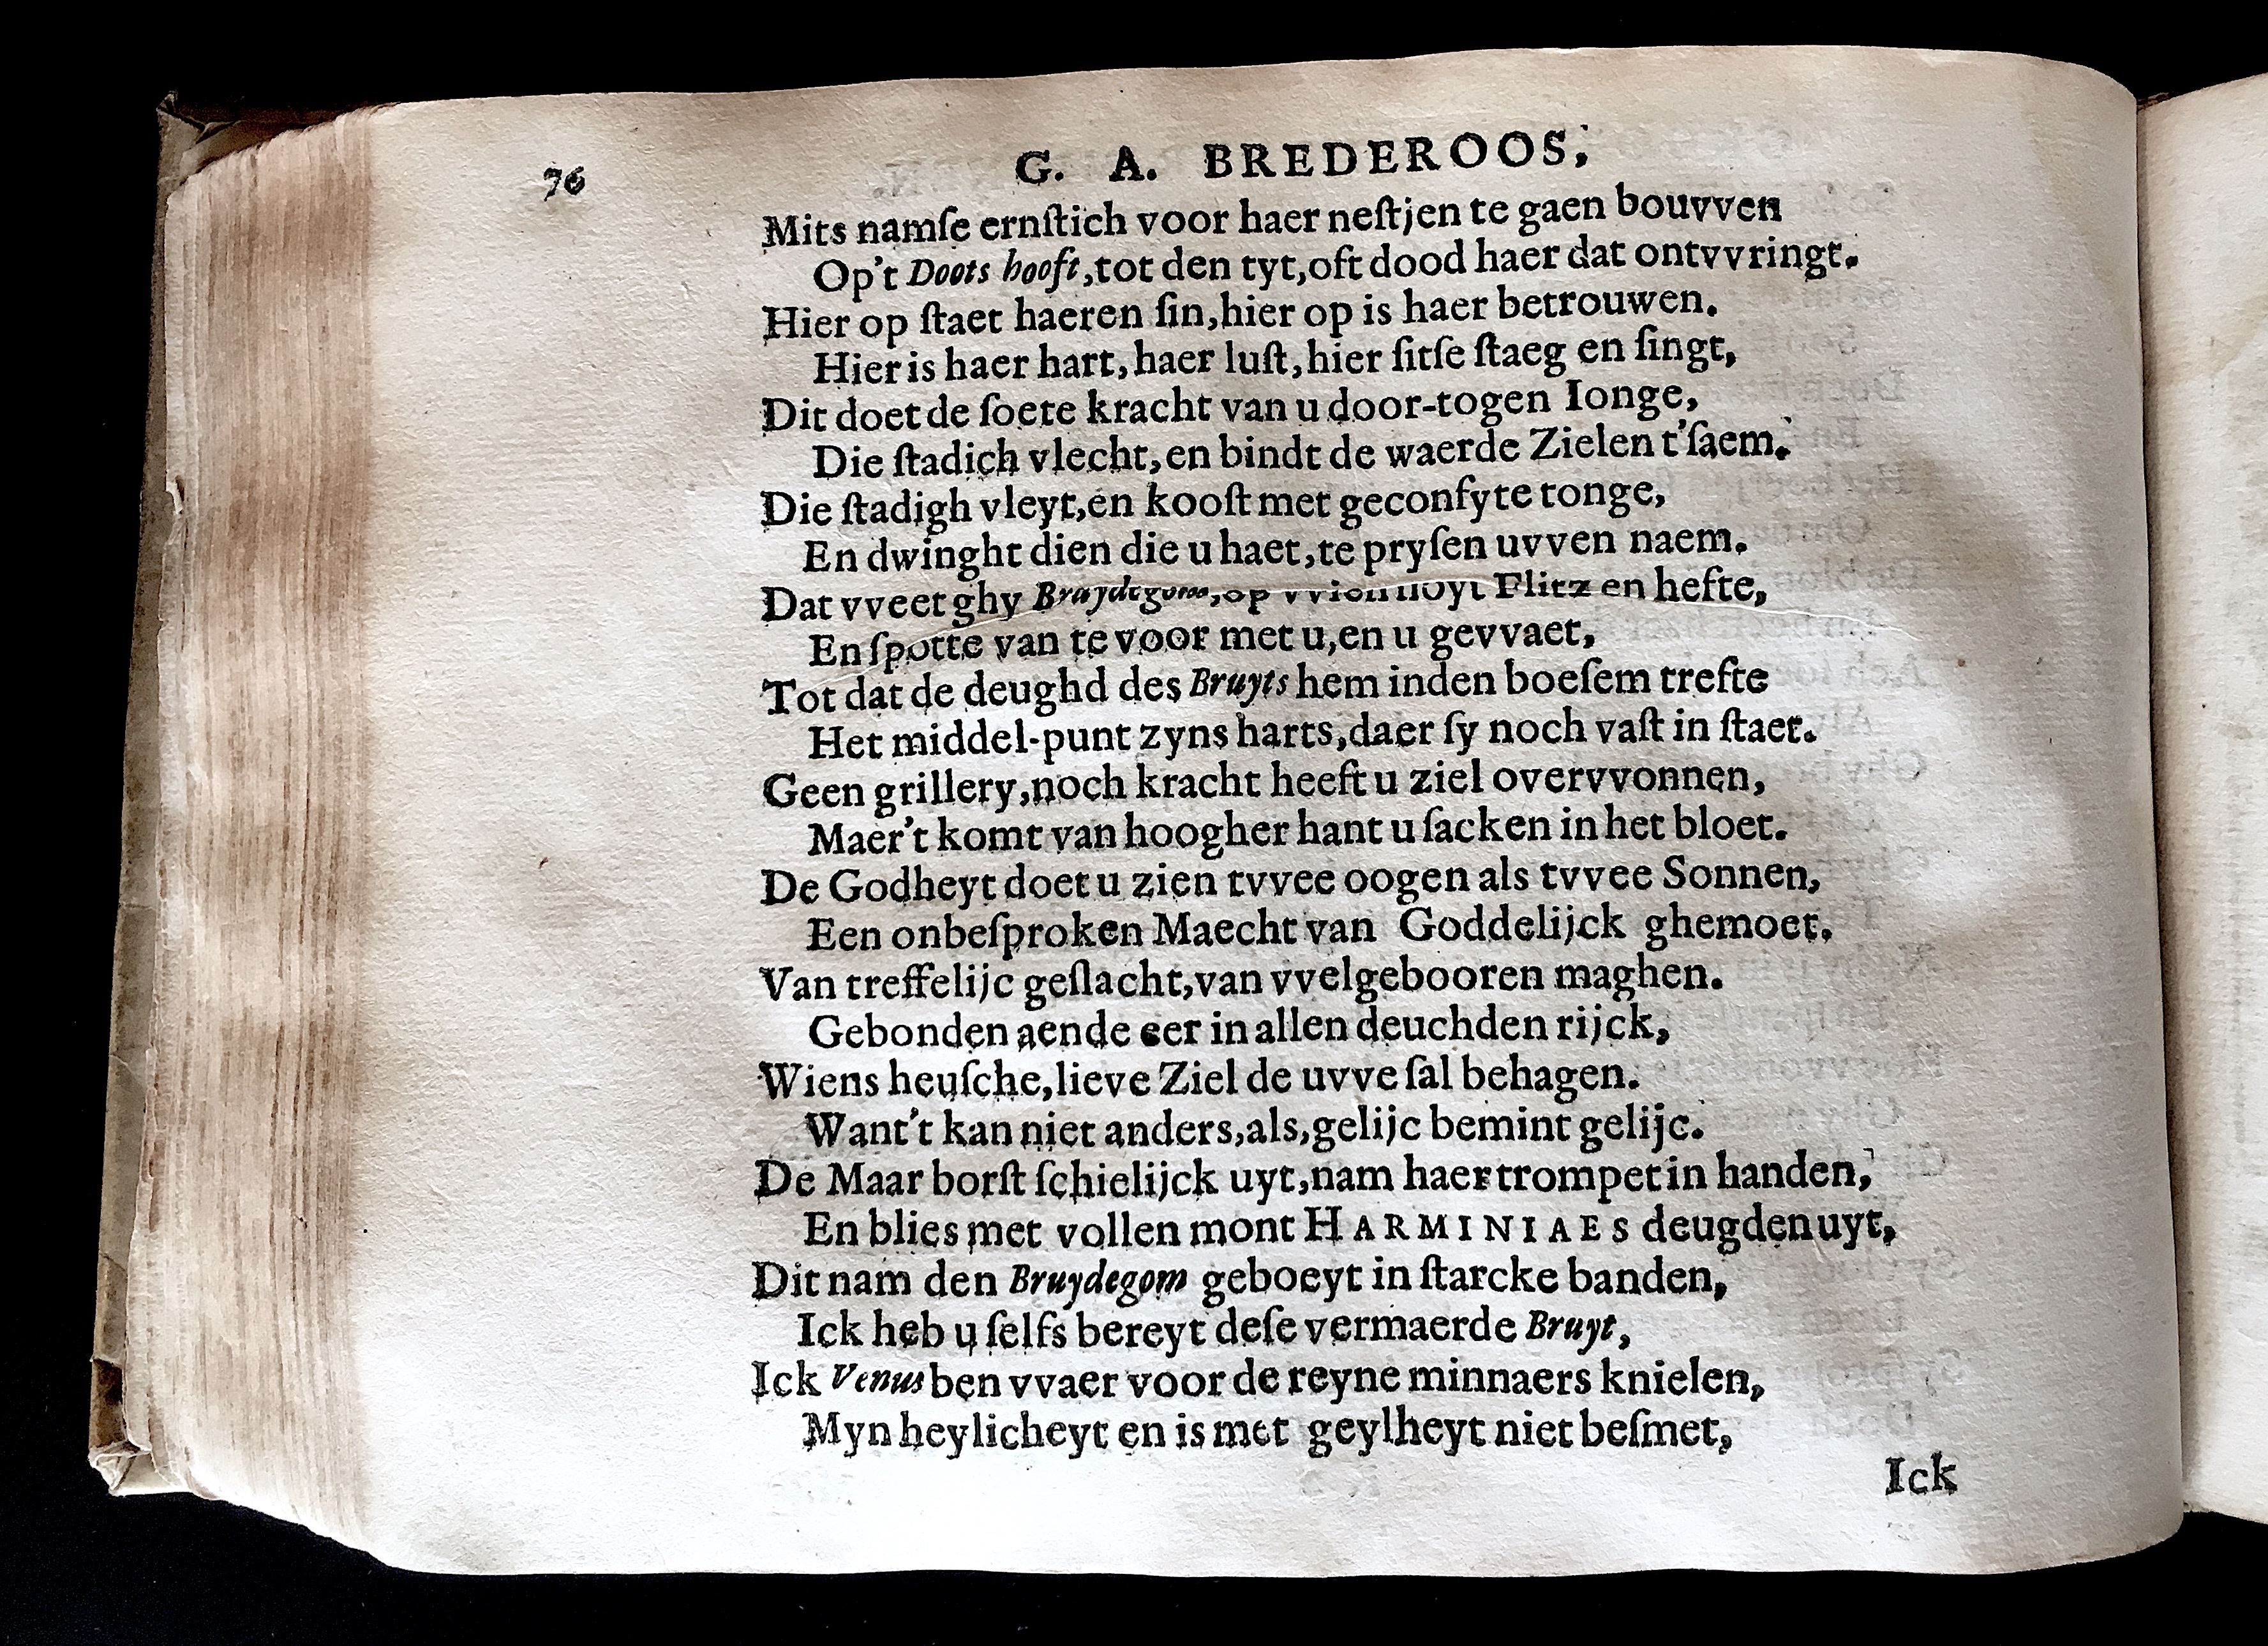 76
G. A. BREDEROOS,
Mits namſe ernſtich voor haer neſtjen te gaen bouvven
Op't Doots hooft, tot den tyt, oft dood haer dat ontvvringt.
Hier op ſtaet haeren ſin, hier op is haer betrouwen.
Hier is haer hart, haer luſt, hier ſitſe ſtaeg en ſingt,
Dit doet de ſoete kracht van u door-togen Ionge,
Die ſtadich vlecht, en bindt de waerde Zielen t'ſaem.
Die ſtadigh vleyt, en kooſt met geconfyte tonge,
En dwinght dien die u haet, te pryſen uvven naem.
Dat vveet ghy Bruydegom, op vvien noyt Flitz en hefte,
En ſpotte van te voor met u, en u gevvaet,
Tot dat de deughd des Bruyts hem inden boeſem trefte
Het middel-punt zyns harts, daer ſy noch vaſt in ſtaet.
Geen grillery, noch kracht heeft u ziel overvvonnen,
Maer't komt van hoogher hant u ſacken in het bloet.
De Godheyt doet u zien tvvee oogen als tvvee Sonnen,
Een onbeſproken Maecht van Goddelijck ghemoet.
Van treffelijc geſlacht, van vvelgebooren maghen.
Gebonden aende eer in allen deuchden rijck,
Wiens heuſche, lieve Ziel de uvve ſal behagen.
Want't kan niet anders, als, gelijc bemint gelijc.
De Maar borſt ſchielijck uyt, nam haer trompet in handen,
En blies met vollen mont HARMINIAES deugden uyt,
Dit nam den Bruydegom geboeyt in ſtarcke banden,
Ick heb u ſelfs bereyt deſe vermaerde Bruyt,
Ick Venus ben vvaer voor de reyne minnaers knielen,
Myn heylicheyt en is met geylheyt niet beſmet,
Ick